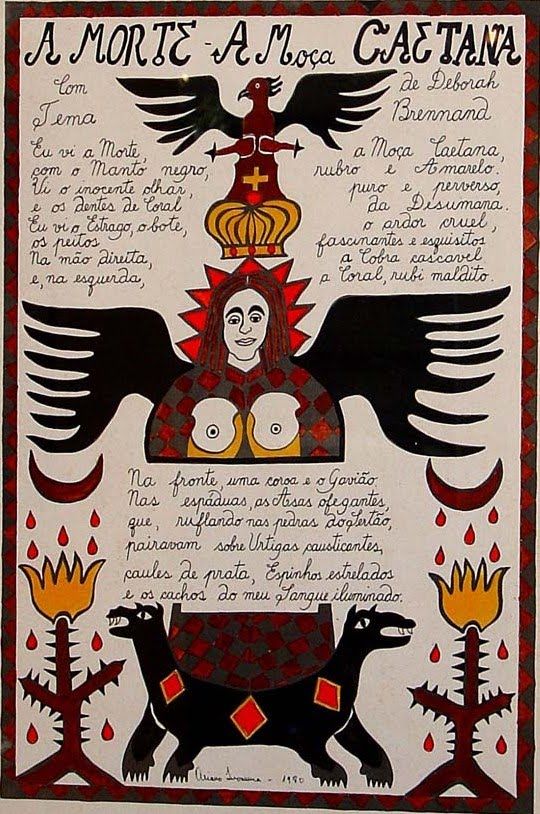 A MORTE - A Moça CAETANA
Com
Tema
de Deborah
Brennand
Eu vi a Morte, a Moça Caetana,
com o Manto negro, rubro e Amarelo.
Vi o inocente olhar, puro e perverso,
e os dentes de Coral da Desumana.
Eu vi o Estrago, o bote, o ardor cruel,
os peitos fascinantes e esquisitos
Na mão direita, a Cobra cascavel
e, na esquerda, a Coral, rubi maldito.
Na fronte, uma coroa e o Gavião.
Nas espáduas, as Asas ofegantes,
que, ruflando nas pedras do Sertão,
pairavam sobre Urtigas causticantes,
caules de prata, Espinhos estrelados
e os cachos do meu Sangue iluminado.
Ariano Suassuna - 1980